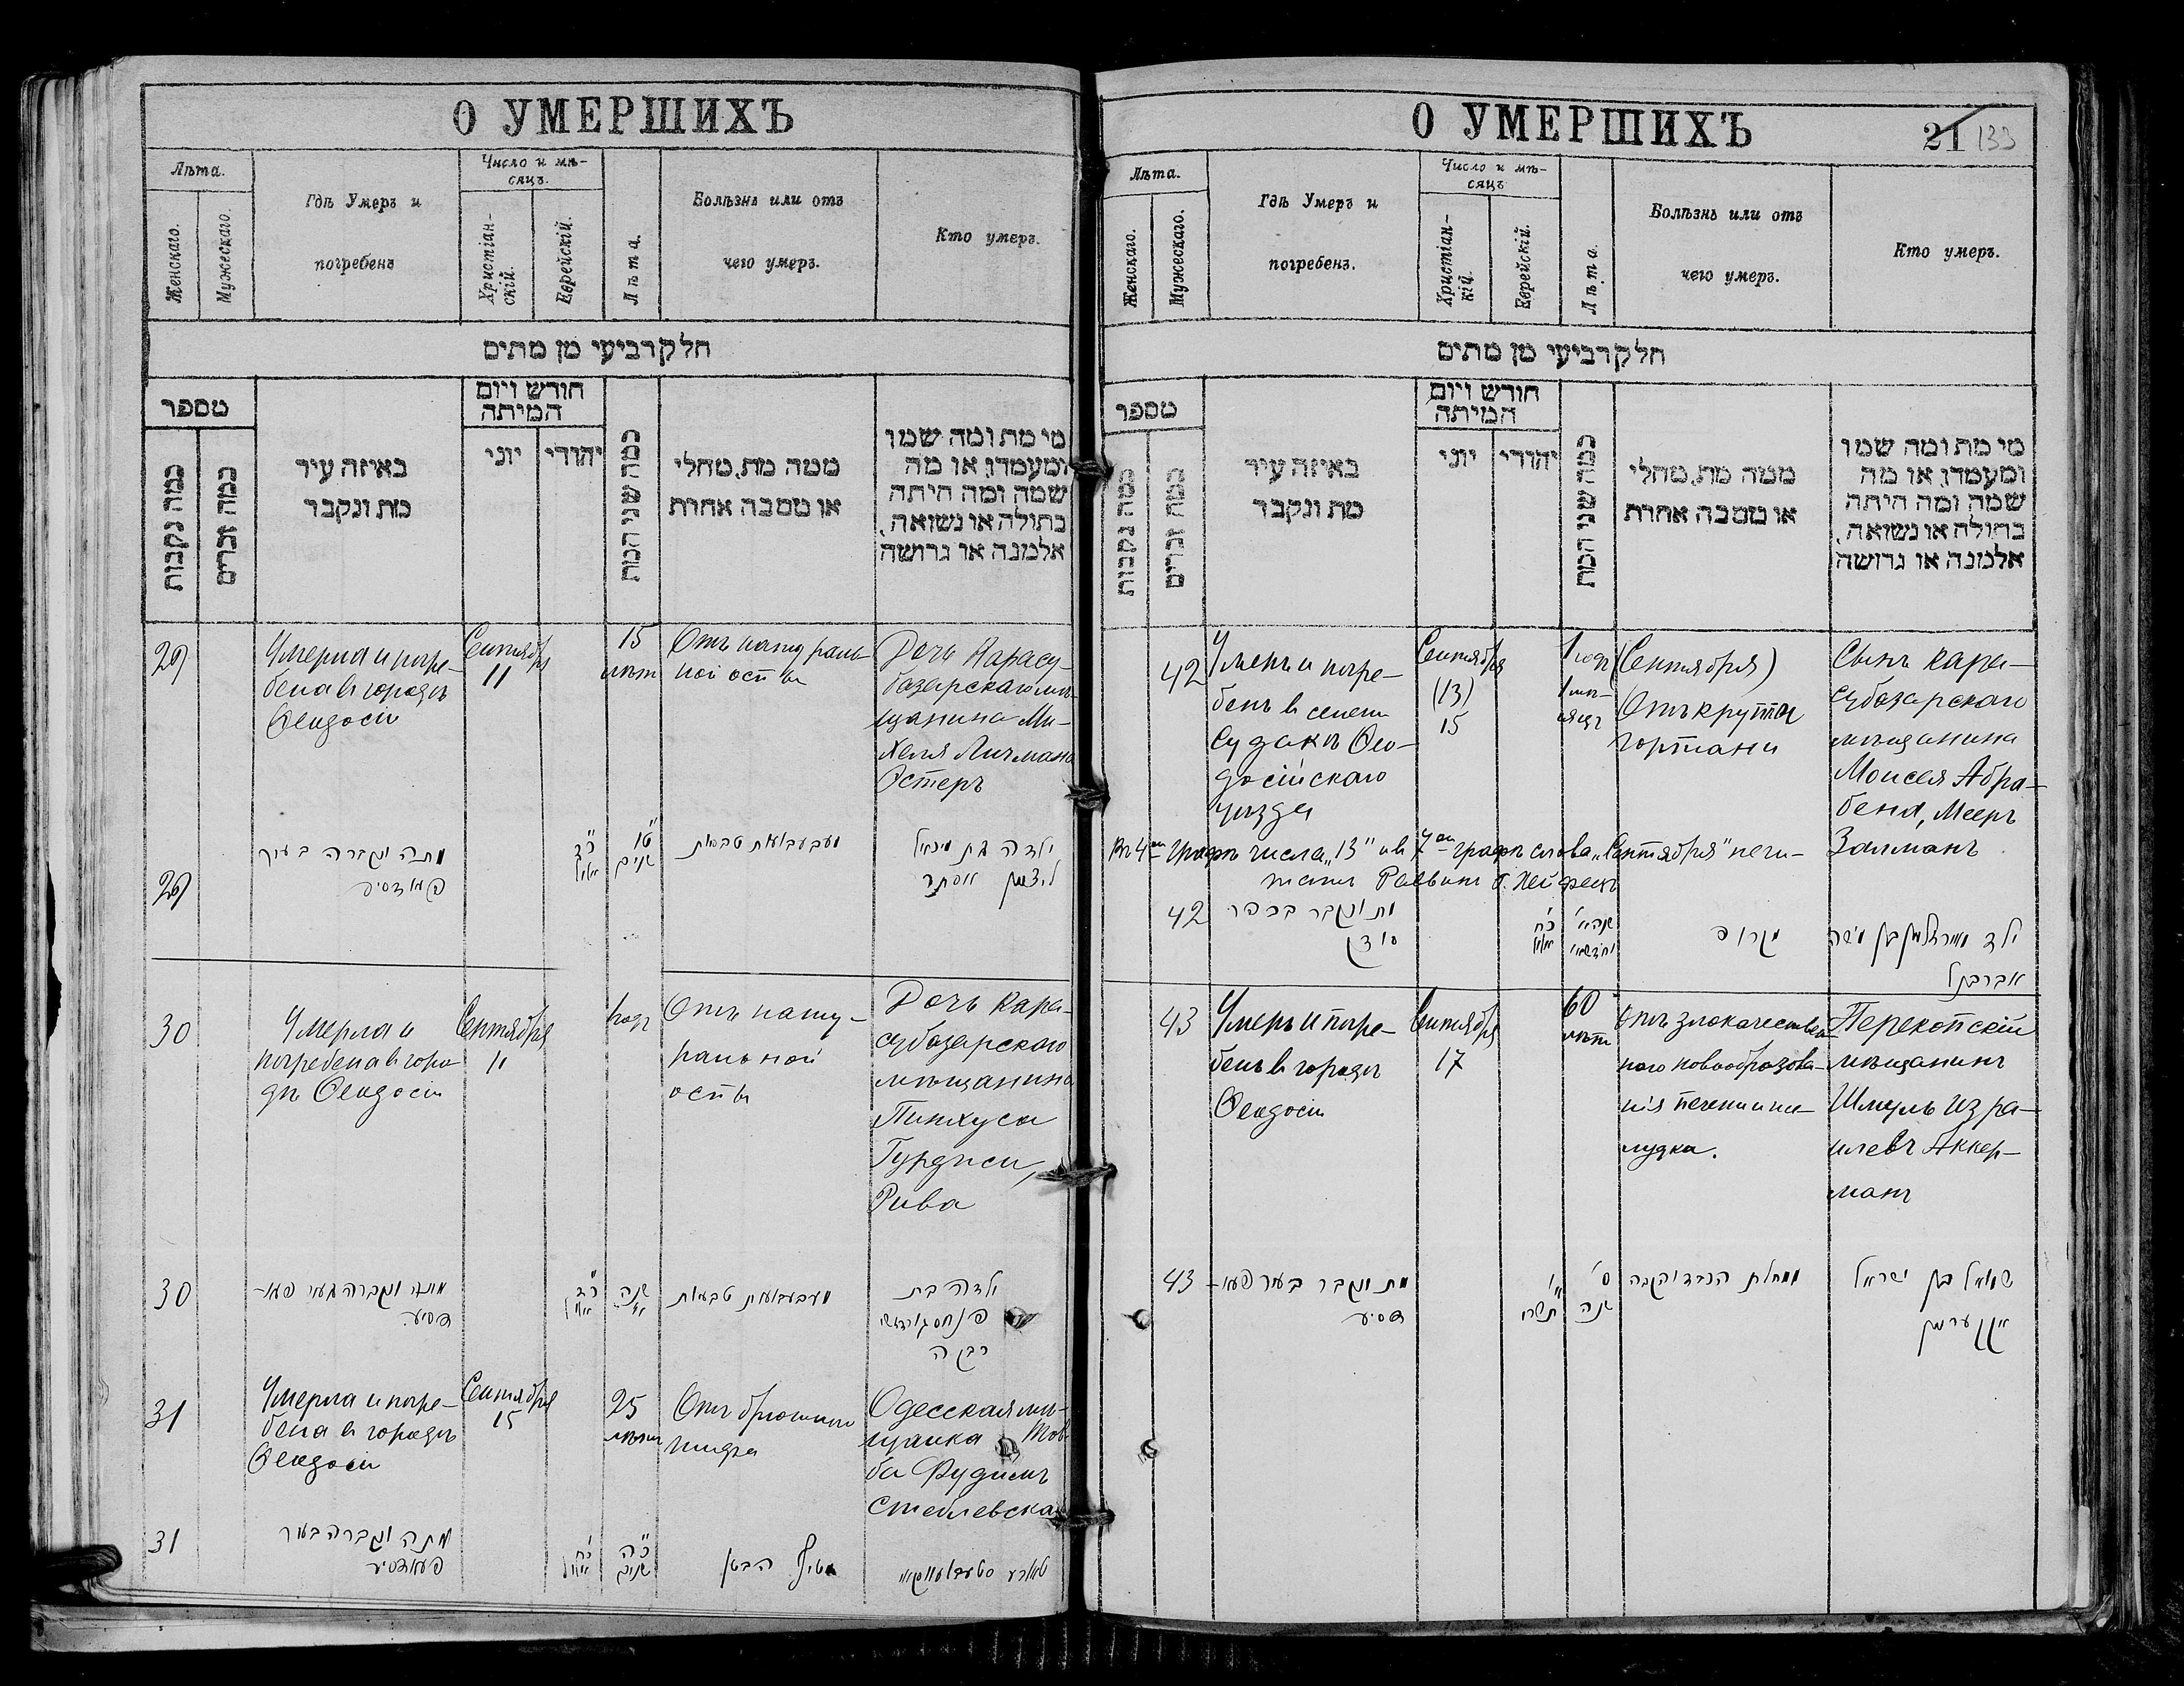 О УМЕРШИХЪ
Лѣта.
Женскаго.
Мужескаго.
Гдѣ Умеръ и
погребенъ
Число и мѣ-
сяцъ.
Христіан-
скій.
Еврейскій.
Лѣта.
Болѣзнь или отъ
чего умеръ.
Кто умеръ.
חלק רביעי מן מתים
מספר
כמה נקבות
כמה זכרים
באיזה עיר
מת ונקבר
חודש ויום
המיתה
יוני
יהודי
כמה שני המת
ממה מת, מחלי
או מסבה אחרת
מי מת ומה שמו
ומעמדו, או מה
שמה ומה היתה
בתולה או נשואה,
אלמנה או גרושה
29
Умерла и погре-
бена въ городѣ
Ѳеодосіи
Сентября
11
15
лѣтъ
Отъ натураль-
ной оспы
Дочь Карасу-
базарскаго мѣ-
щанина Ми-
хеля Личмана
Эстеръ
29
מתה ונקברה בעיר
כ״ד
אלול
ט״ו
שנים
מאבעבועות טבעיות
ילדה בת מיכאל
אסתר
30
Умерла и
погребена въ горо-
дѣ Ѳеодосіи
Сентября
11
1 годъ
Отъ нату-
ральной
оспы
Дочь Кара-
субазарскаго
мѣщанина
Пинхуса
Гурджи,
Рива
30
מתה ונקברה בעיר פעא-
דסיע.
כ״ד
אלול
שנה
א׳
מאבעבועות טבעיות
ילדה בת
פנחס גורדזשי
רבקה
31
Умерла и погре-
бена въ городѣ
Ѳеодосіи
Сентября
15
25
лѣтъ
Отъ брюшного
тифа
Одесская мѣ-
щанка Тов-
ба Фудимъ
Стеблевская
31
מתה ונקברה בעיר
פעאדסיע
כ״ח
אלול
כ״ה
שנים
הבטן
О УМЕРШИХЪ
21 133
Лѣта.
Женскаго.
Мужескаго.
Гдѣ Умеръ и
погребенъ.
Число и мѣ-
сяцъ
Христіан-
кій.
Еврейскій.
Лѣта.
Болѣзнь или отъ
чего умеръ.
Кто умеръ.
חלק רביעי מן מתים
מספר
כמה נקבות
כמה זכרים
באיזה עיר
מת ונקבר
חודש ויום
המיתה
יוני
יהודי
כמה שני המת
ממה מת, מחלי
או מסבה אחרת
מי מת ומה שמו
ומעמדו, או מה
שמה ומה היתה
בתולה או נשואה,
אלמנה או גרושה
42
Умеръ и погре-
бенъ въ селеніи
Судакъ Ѳео-
досійскаго
уѣзда
Сентября
(13)
15
1 годъ
1 мѣ-
сяцъ
(Сентября)
Отъ крупа
гортани
Сынъ Кара-
субазарскаго
мѣщанина
Моисея Абра-
бена, Мееръ
Залманъ
Въ 4ой графѣ числа „13" и въ 7ой графѣ слова „Сентября" нечи-
тать Раввинъ
42
מת ונקבר בכפר
סודק
כ״ח
אלול
שנה א׳
וחדש א׳
מקרופ
ילד מאיר זלמן בן משה
אברבנל
43
Умеръ и погре-
бенъ въ городѣ
Ѳеодосіи
Сентября
17
60
лѣтъ
Отъ злокачествен-
наго новообразова-
нія печени и же-
лудка.
Перекопскій
мѣщанинъ
Шмуль Изра-
илевъ Аккер-
манъ
43
מת ונקבר בעיר פעא-
דסיע
א׳
תשרי
ס׳
שנה
ממחלת הכבד והקבה
שמואל בן ישראל
אקקערמן